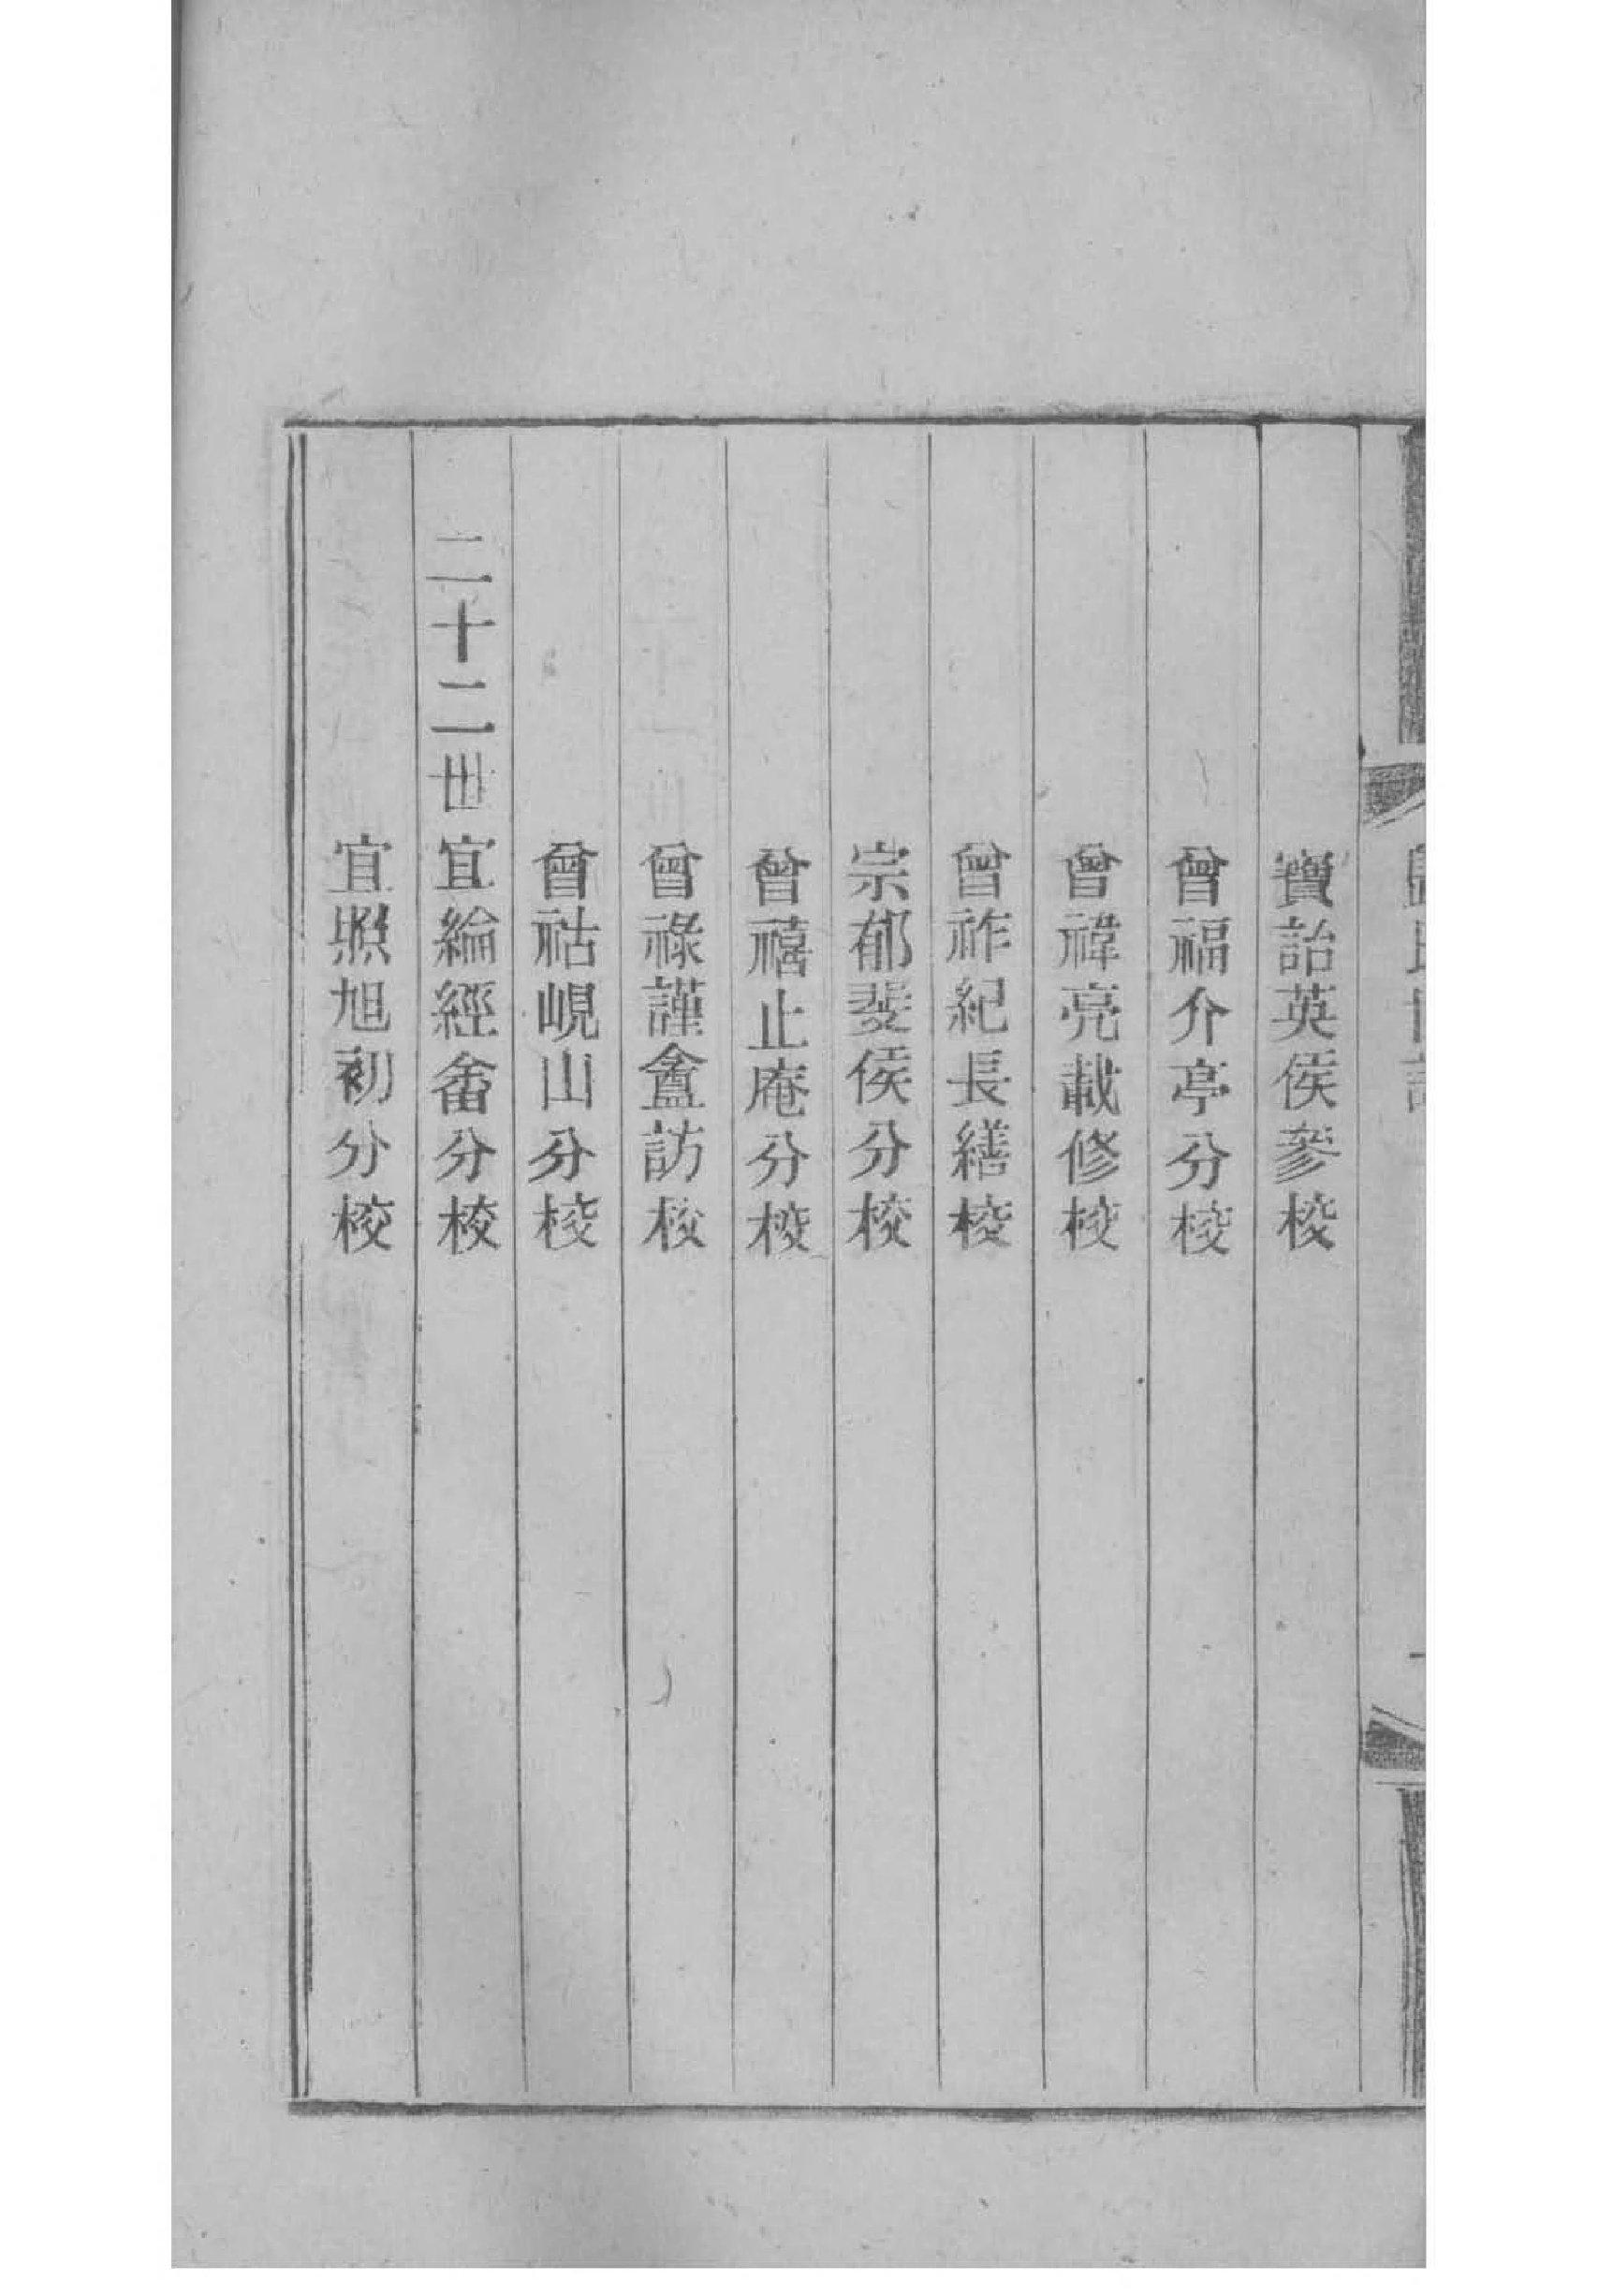 寶詒英侯參校
曾福介亭分校
曾禕亮載修校
曾祚紀長繕校
宗郁斐侯分校
曾禧止庵分校
曾祿謹盦訪校
曾祜峴山分校
二十二世 宜綸經畬分校
宜照旭初分校